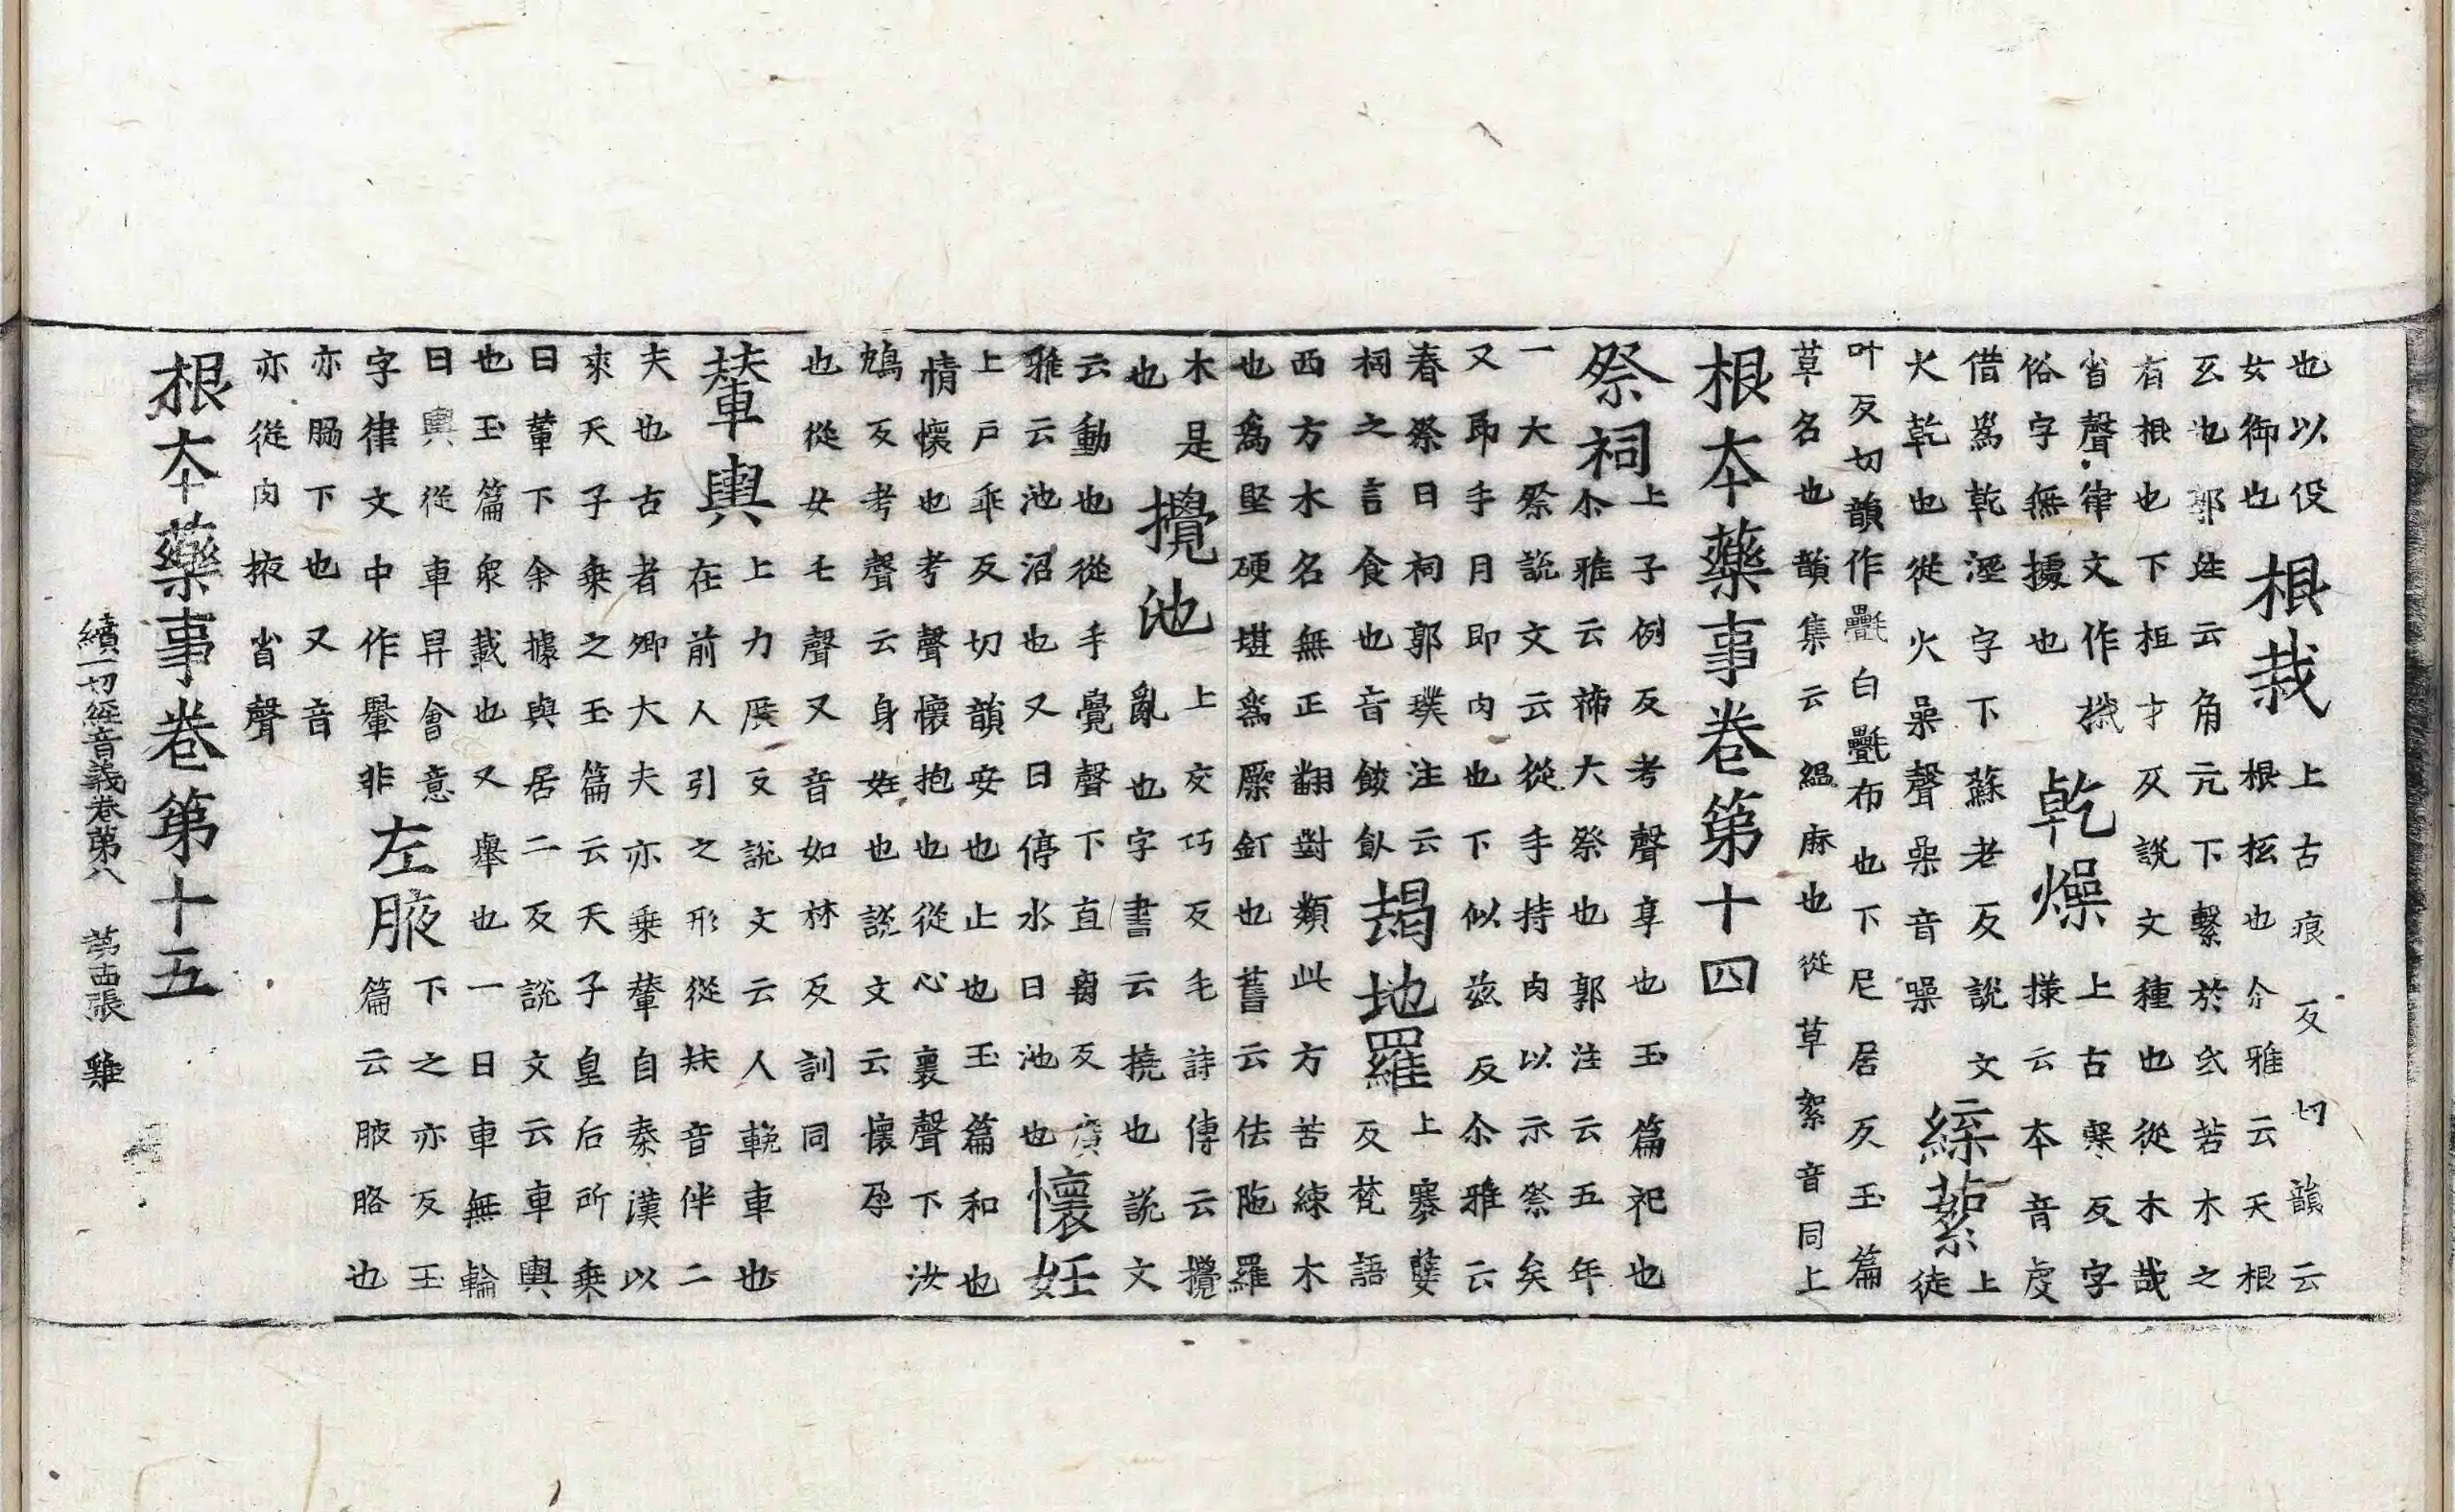 也以役
女御也
根栽
上古痕反切韻云
根柢也尒雅云天根
互也郭注云角亢下繫於氐若木之
有根也下栽才反説文種也從木哉
省聲律文作㭜
俗字無據也
乾燥
上古寒反字
㨾云本音虔
借爲乾溼字下蘇老反説文
火乾也從火喿聲喿音噪
緤蕠
上徒
叶反切韻作氎白氎布也下尼居反玉篇
草名也韻集云緼麻也從草絮音同上
根本藥事卷第十四
祭祠
上子例反考聲享也玉篇祀也
尒雅云禘大祭也郭注云五年
一大祭説文云從手持肉以示祭矣
又即手月即肉也下似茲反尒雅云
春祭曰祠郭璞注云
祠之言食也音餕飤
朅地羅
上蹇孽
反梵語
西方木名無正翻對類此方苦練木
也爲堅硬堪爲橜釘也舊云佉陁羅
木是
也
攪池
上交巧反毛詩傳云攪
亂也字書云撓也説文
云動也從手覺聲下直离反廣
雅云池沼也又曰停水曰池也
懷妊
上戶乖反切韻安也止也玉篇和也
情懷也考聲懷抱也從心褱聲下汝
鴆反考聲云身姙也説文云懷孕
也從女壬聲又音如林反訓同
輦輿
上力展反説文云人輓車也
在前人引之形從㚘音伴二
夫也古者卿大夫亦乗輦自秦漢以
來天子乗之玉篇云天子皇后所乗
曰輦下余據與居二反説文云車輿
也玉篇衆載也又舉也一曰車無輪
曰輿從車舁會意
字律文中作轝非
左腋
下之亦反玉
篇云腋胳也
亦脇下也又音
亦從肉掖省聲
根本藥事卷第十五
續一切經音義卷第八 第十四張 雞